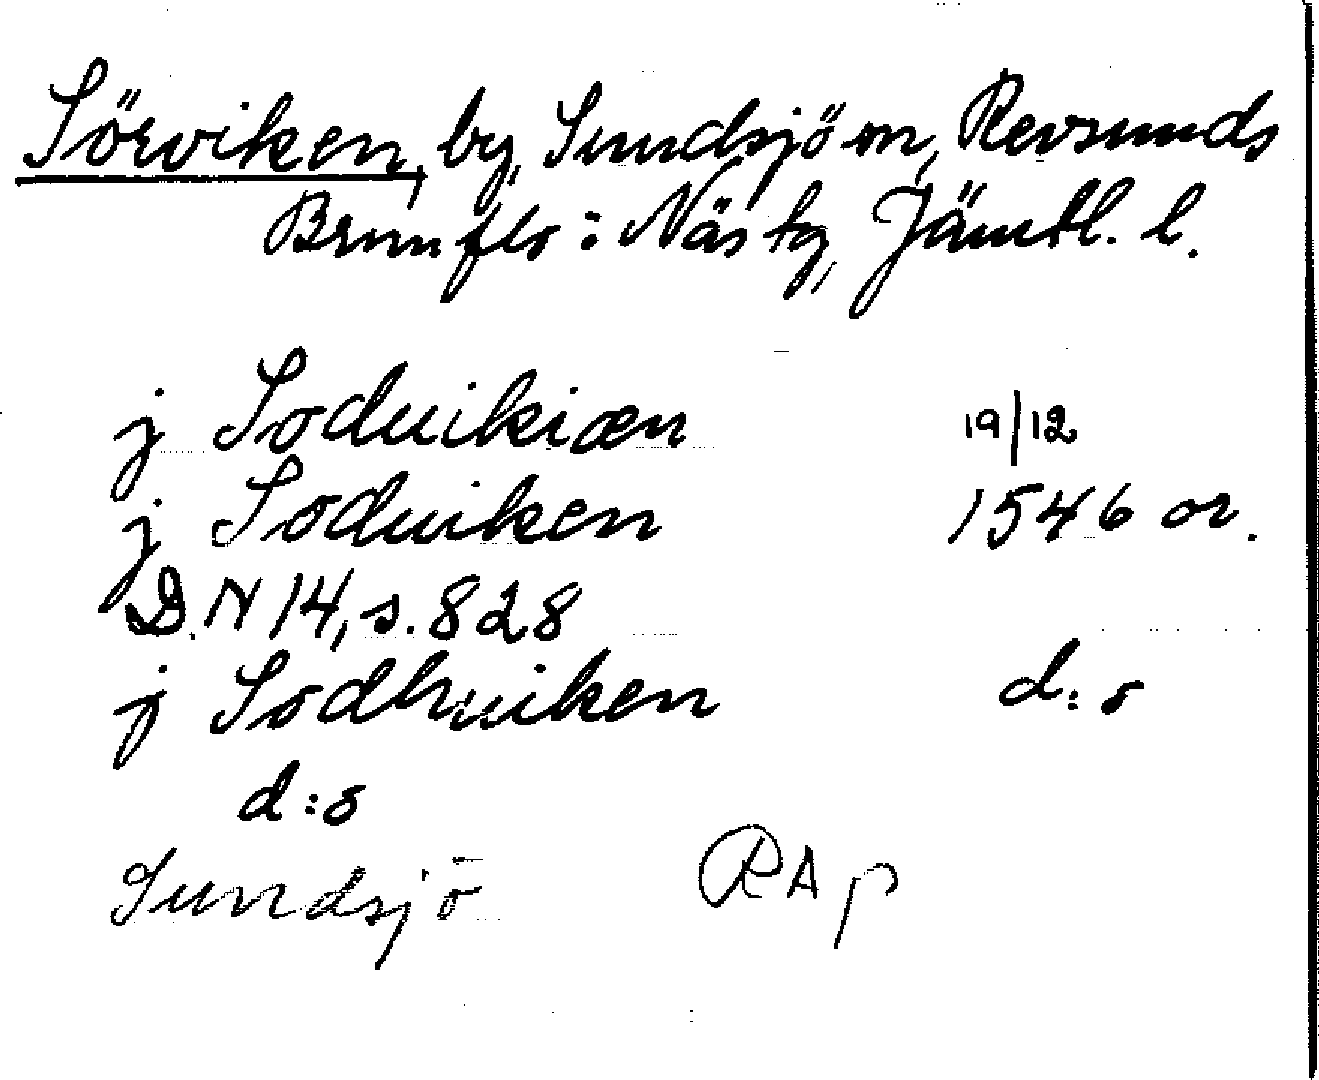 Sörviken, by, Sundsjö sn, Revsunds
Brunflo: Näs tg, Jämtl. l.
j Soduikiæn 19/12
j Soduiken 1546 or.
D.N 14, s. 828
j Sodhuiken d:o
d:o
Sundsjö RAp